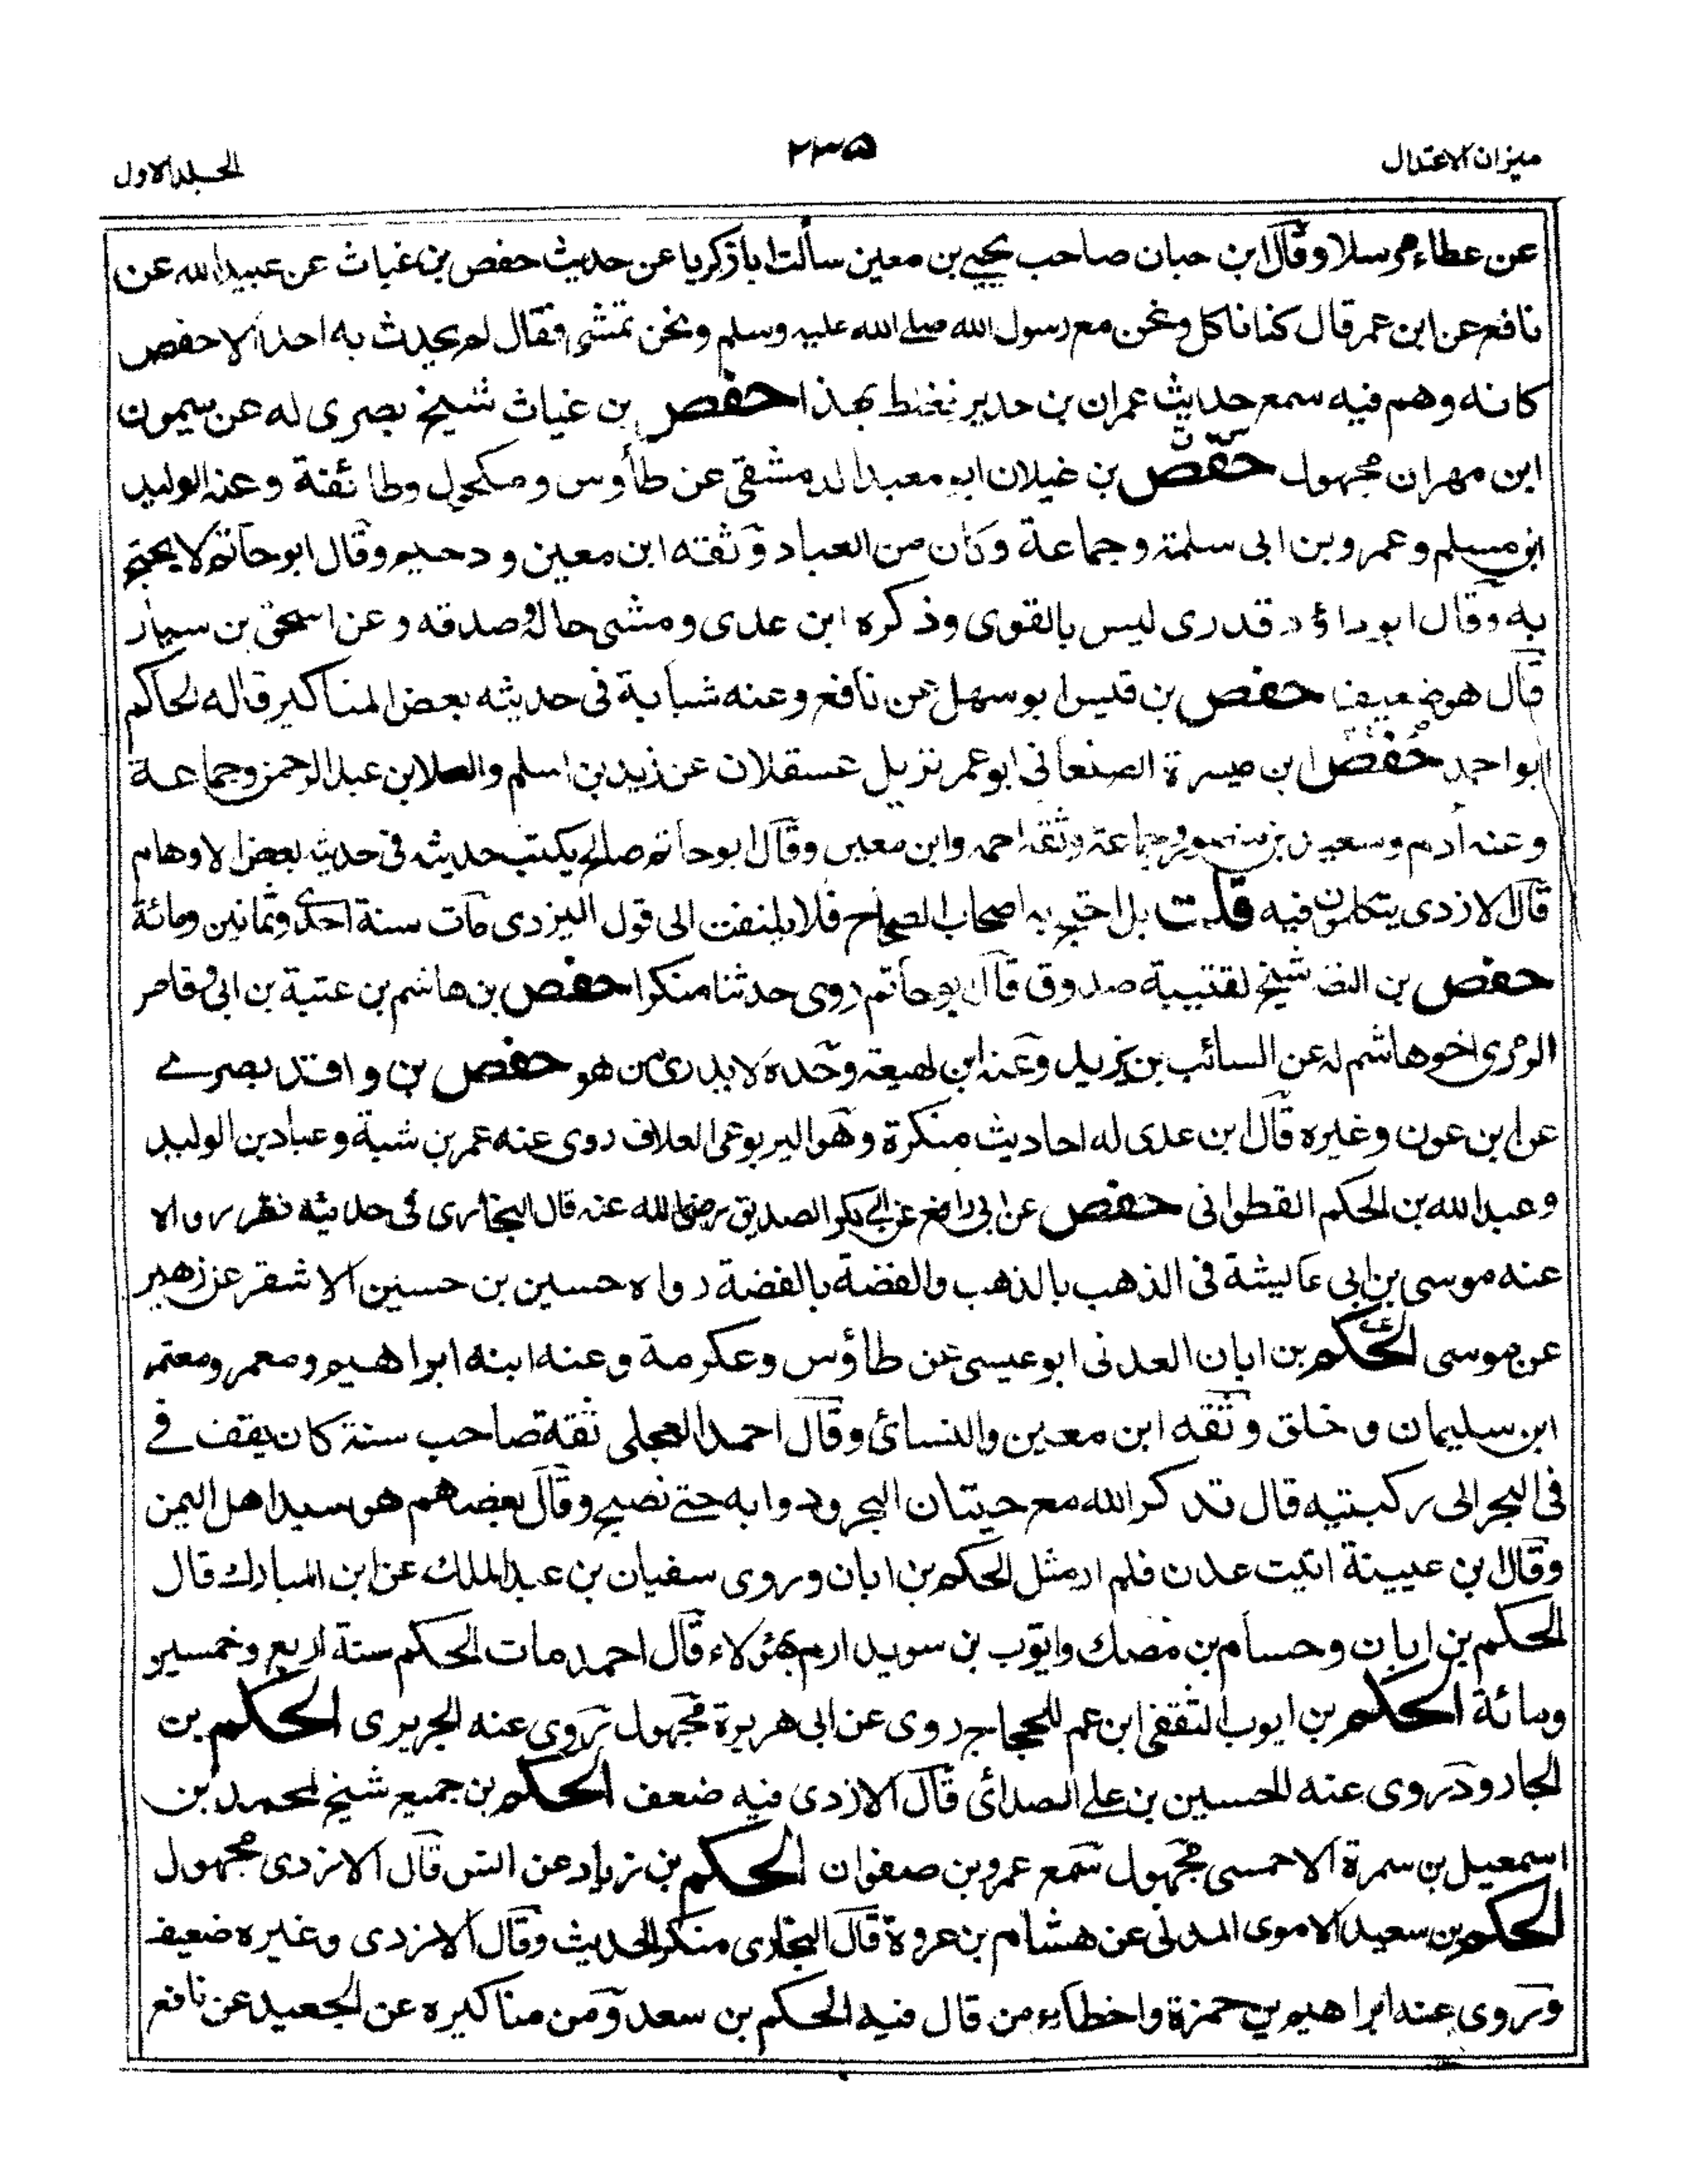 ميزان الاعتدال
٢٣٥
الجلد الاول
عن عطاء مرسلا وقال ابن حبان صاحب يحيى بن معين سألت ابا زكريا عن حديث حفص بن غياث عن عبيد الله عن
نافع عن ابن عمر قال كنا ناكل ونحن مع رسول الله صلے الله عليه وسلم ونحن نمشي فقال لم يحدث به احدا الا حفص
كانه وهم فيه سمع حديث عمران بن حدير فغلط بهذا حفص بن غياث شيخ بصرى له عن ميمون
ابن مهران مجهول حفص بن غيلان ابو معبد الدمشقي عن طأوس ومكحول وطائفة وعنه الوليد
ابن مسلم وعمرو بن ابى سلمة وجماعة وكان من العباد وثقه ابن معين ودحيم وقال ابو حاتم لا يحتج
به وقال ابو داؤد قدرى ليس بالقوى وذكره ابن عدى ومشى حاله وصدقه وعن اسحق بن سيار
قال هو ضعيف حفص بن قيس ابو سهل عن نافع وعنه شبابة فى حديثه بعض المناكير قاله الحاكم
ابو احمد حفص ابن ميسرة الصنعانى ابو عمر نزيل عسقلان عن زيد بن اسلم والعلا بن عبد الرحمن وجماعة
وعنه أدم وسعيد بن منصور وجماعة وثقه احمد وابن معين وقال ابو حاتم صالح يكتب حديثه فى حديثه بعض الاوهام
قال الازدى يتكلمون فيه قلت بل احتج به اصحاب الصحاح فلا يلتفت الى قول اليزدى مات سنة احدى وثمانين ومائة
حفص بن النضر شيخ لقتيبة صدوق قال ابو حاتم روى حدثنا منكرا حفص بن هاشم بن عتبة بن ابى وقاص
الزهرى اخو هاشم له عن السائب بن يزيد وعنه ابن لهيعة وحده لا يدرى من هو حفص بن واقد بصرے
عن ابن عون وغيره قال ابن عدى له احاديث منكرة وهو اليربوعى العلاف روى عنه عمر بن شبة وعباد بن الوليد
وعبد الله بن الحكم القطوانى حفص عن ابى رافع عن ابى بكر الصديق رضي الله عنه قال البخارى فى حديثه نظر رواه
عنه موسى بن ابى عايشة فى الذهب بالذهب والفضة بالفضة رواه حسين بن حسين الاشقر عن زهير
عن موسى الحكم بن ابان العدنى ابو عيسى عن طاؤس وعكرمة وعنه ابنه ابراهيم ومعمر ومعتمر
ابن سليمان وخلق وثقه ابن معين والنسائ وقال احمد العجلى ثقة صاحب سنة كان يقف فے
فى البحر الى ركبتيه قال تذكر الله مع حيتان البحر ودوابه حتے نصبح وقال بعضهم هو سيد اهل اليمن
وقال ابن عيينة اتيت عدن فلم ار مثل الحكم بن ابان وروى سفيان بن عبد الملك عن ابن المبارك قال
الحكم بن ابان وحسام بن مصك وايوب بن سويد ارم بهؤلاء قال احمد مات الحكم سنة اربع وخمسين
ومائة الحكم بن ايوب الثقفى ابن عم للحجاج روى عن ابى هريرة مجهول روى عنه الجريرى الحكم بن
الجارود روى عنه للحسين بن على الصدائ قال الازدى فيه ضعف الحكم بن جميع شيخ لمحمد بن
اسمعيل بن سمرة الاحمسى مجهول سمع عمرو بن صفوان الحكم بن زياد عن انس قال الازدى مجهول
الحكم بن سعيد الاموى المدنى عن هشام بن عروة قال البخارى منكر الحديث وقال الازدى وغيره ضعيف
وروى عنه ابراهيم بن حمزة واخطاء من قال فيه الحكم بن سعد ومن مناكيره عن الجعيد عن نافع